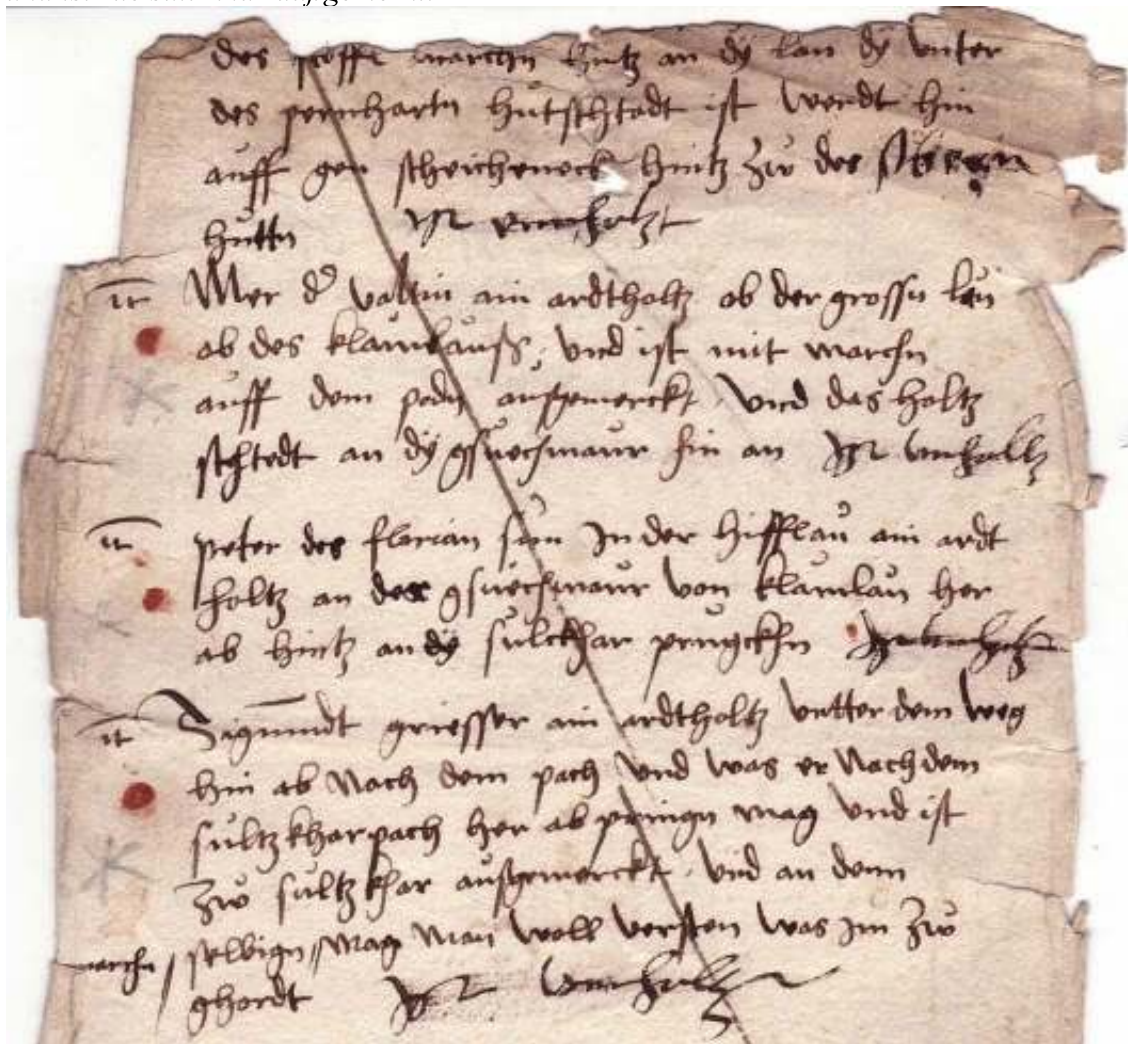 des marchn hintz an dÿ lan dÿ vnter
des pernhartn hütschtedt ist werdt hin
auff gen hintz zw des
hüttn ist verholtzt
it Mer der valltin ain ardtholtz ob der grossn lan
ob des klamhauss, vnd ist mit marchn
auff dem podn aussgemerckt, vnd das holtz
schtedt an dÿ gsuechmaur hin an ist verholtz
it peter des florian sun In der hifflau ain ardt
holtz an der gsuechmaur von klamlan her
ab hintz an dÿ sulckhar prugckhn
it Sigmundt griesser ain ardtholtz vntter dem weg
hin ab Nach dem pach vnd was er Nach dem
sultzkharpach her ab pringn mag vnd ist
zw sultzkhar aussgemerckt, vnd an denn
marchn / selbign / Mag Man woll versten was Im zw
ghordt ist verholtz